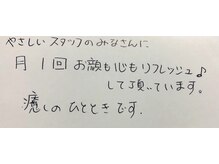 やさしいスタッフのみなさんに
月1回お顔も心もリフレッシュ♪
して頂いています。
癒しのひとときです.